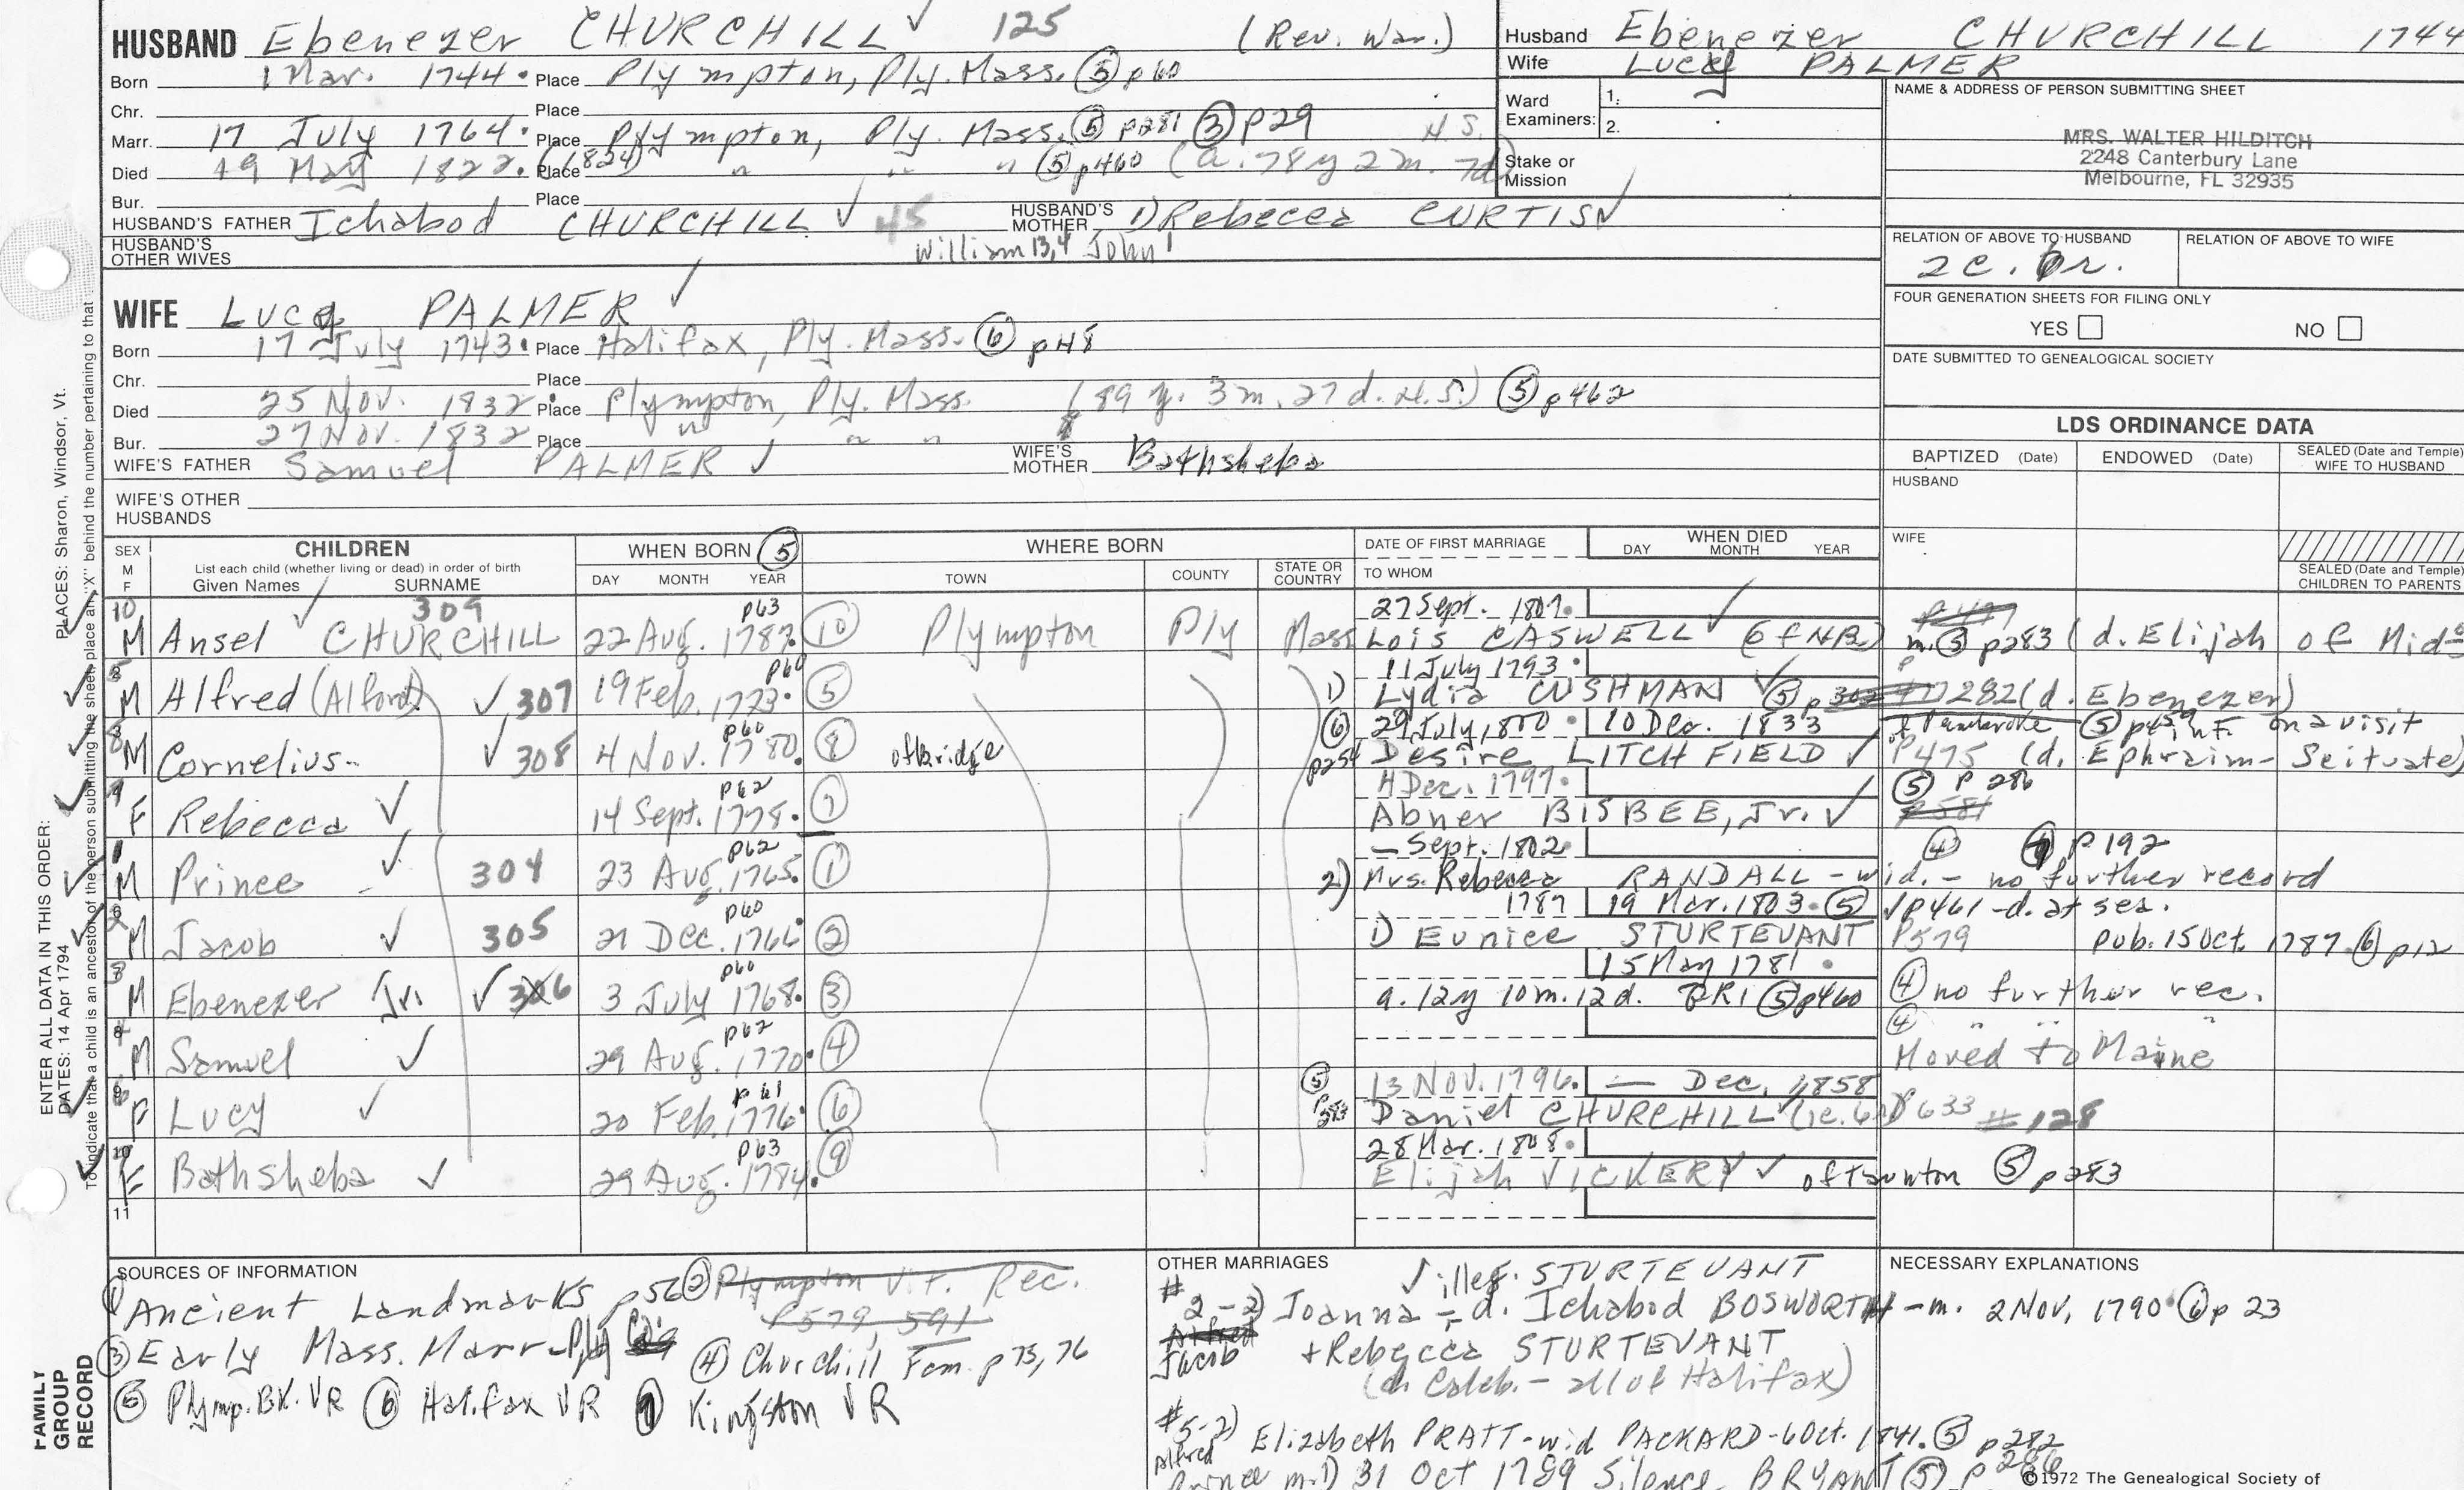 HUSBAND Ebenezer CHURCHILL ✓ 125 (Rev. War.)
Born 1 Mar. 1744. Place Plympton, Ply. Mass. ⑤ p60
Chr. Place
Marr. 17 July 1764. Place Plympton, Ply. Mass. ⑤ p281 ③ p29
Died 19 May 1822. (1824) Place " " " ⑤ p460 (a. 78y 2m. 7d) H.S.
Bur. Place
HUSBAND'S FATHER Ichabod CHURCHILL ✓ 45 HUSBAND'S MOTHER 1) Rebecca CURTIS ✓
HUSBAND'S OTHER WIVES William 13,4 John 1
WIFE Lucy PALMER ✓
Born 17 July 1743. Place Halifax, Ply. Mass. ⑥ p48
Chr. Place
Died 25 Nov. 1832. Place Plympton, Ply. Mass. (89 y. 3m. 27d. H.S.) ⑤ p462
Bur. 27 Nov. 1832 Place " " "
WIFE'S FATHER Samuel PALMER ✓ WIFE'S MOTHER Bathsheba
WIFE'S OTHER HUSBANDS
Husband Ebenezer CHURCHILL 1744
Wife Lucy PALMER
Ward Examiners: 1.
2.
Stake or Mission
NAME & ADDRESS OF PERSON SUBMITTING SHEET
MRS. WALTER HILDITCH
2248 Canterbury Lane
Melbourne, FL 32935
RELATION OF ABOVE TO HUSBAND RELATION OF ABOVE TO WIFE
2c. 6r.
FOUR GENERATION SHEETS FOR FILING ONLY
YES NO
DATE SUBMITTED TO GENEALOGICAL SOCIETY
LDS ORDINANCE DATA
BAPTIZED (Date) ENDOWED (Date) SEALED (Date and Temple) WIFE TO HUSBAND
HUSBAND
WIFE
SEALED (Date and Temple) CHILDREN TO PARENTS
SEX M F CHILDREN WHEN BORN ⑤ WHERE BORN DATE OF FIRST MARRIAGE WHEN DIED
List each child (whether living or dead) in order of birth DAY MONTH YEAR
Given Names SURNAME DAY MONTH YEAR TOWN COUNTY STATE OR COUNTRY TO WHOM
10 309 p63 27 Sept. 1807.
M Ansel ✓ CHURCHILL 22 Aug. 1787. ⑩ Plympton Ply Mass Lois CASWELL ✓ (of NB) m. ⑤ p283 (d. Elijah of Mid
p60 11 July 1793.
M Alfred (Alford) ✓ 307 19 Feb. 1773. ⑤ 1) Lydia CUSHMAN ✓ ⑤ p 282 (d. Ebenezer)
p60 ⑥ 29 July, 1800. 10 Dec. 1833 of Pembroke ⑤ p459 inf. on a visit
M Cornelius ✓ 308 4 Nov. 1780. ⑧ of bridge p254 Desire LITCHFIELD ✓ P475 (d. Ephraim - Scituate)
p62 4 Dec. 1797. ⑤ P 286
F Rebecca ✓ 14 Sept. 1778. ⑦ Abner BISBEE, Jr. ✓ P581
p62 — Sept. 1802. ④ ⑦ p192
M Prince ✓ 304 23 Aug. 1765. ① 2) Mrs. Rebecca RANDALL - wid. - no further record
p60 1787 19 Mar. 1803. ⑤ ✓p461 - d. at sea.
M Jacob ✓ 305 21 Dec. 1766 ② 1) Eunice STURTEVANT P579 pub. 15 Oct. 1787. ⑥ p12
p60 15 May 1781.
M Ebenezer Jr. ✓ 306 3 July 1768. ③ a. 12y 10m. 12d. GR1 ⑤ p460 ④ no further rec.
p62 ④ " " "
M Samuel ✓ 29 Aug. 1770. ④ Moved to Maine
p61 ⑤ 13 Nov. 1796. — Dec. 1858
F Lucy ✓ 20 Feb. 1776. ⑥ p283 Daniel CHURCHILL ✓ P633 #128
p63 28 Mar. 1808.
F Bathsheba ✓ 29 Aug. 1784. ⑨ Elijah VICKERY ✓ of Taunton ⑤ p283
11
SOURCES OF INFORMATION
① Ancient Landmarks p56 ② Plympton Vit. Rec.
P579, 591
③ Early Mass. Marr - Ply ④ Churchill Fam. p 75, 76
⑤ Plymp. BK. VR ⑥ Halifax VR ⑦ Kingston VR
OTHER MARRIAGES
✓ illeg. STURTEVANT
#2-2) Joanna - d. Ichabod BOSWORTH - m. 2 Nov. 1790. ⑥ p 23
Alfred Jacob + Rebecca STURTEVANT
(ch Caleb. - all of Halifax)
#5-2) Alfred Elizabeth PRATT - wid PACKARD - 6 Oct. 1841. ⑤ p282
Prince m. 1) 31 Oct 1789 Silence BRYANT ⑤ p 286
NECESSARY EXPLANATIONS
©1972 The Genealogical Society of
FAMILY GROUP RECORD
ENTER ALL DATA IN THIS ORDER:
DATES: 14 Apr 1794
PLACES: Sharon, Windsor, Vt.
To indicate that a child is an ancestor of the person submitting the sheet, place an "X" behind the number pertaining to that